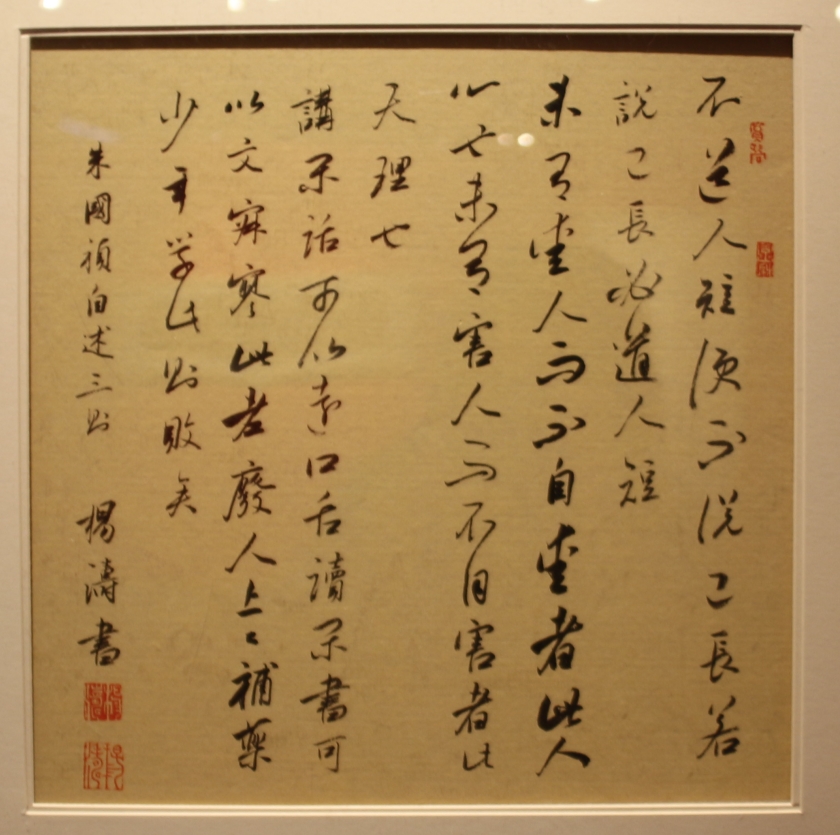 不道人短便不說己長若
說己長必道人短
未有愛人而不自愛者此人
心也未有害人而不自害者此
天理也
講閑話可以遠口舌讀閑書可
以文寂寥此老廢人上上補藥
少年學此則敗矣
朱國禎自述三則 楊濤書